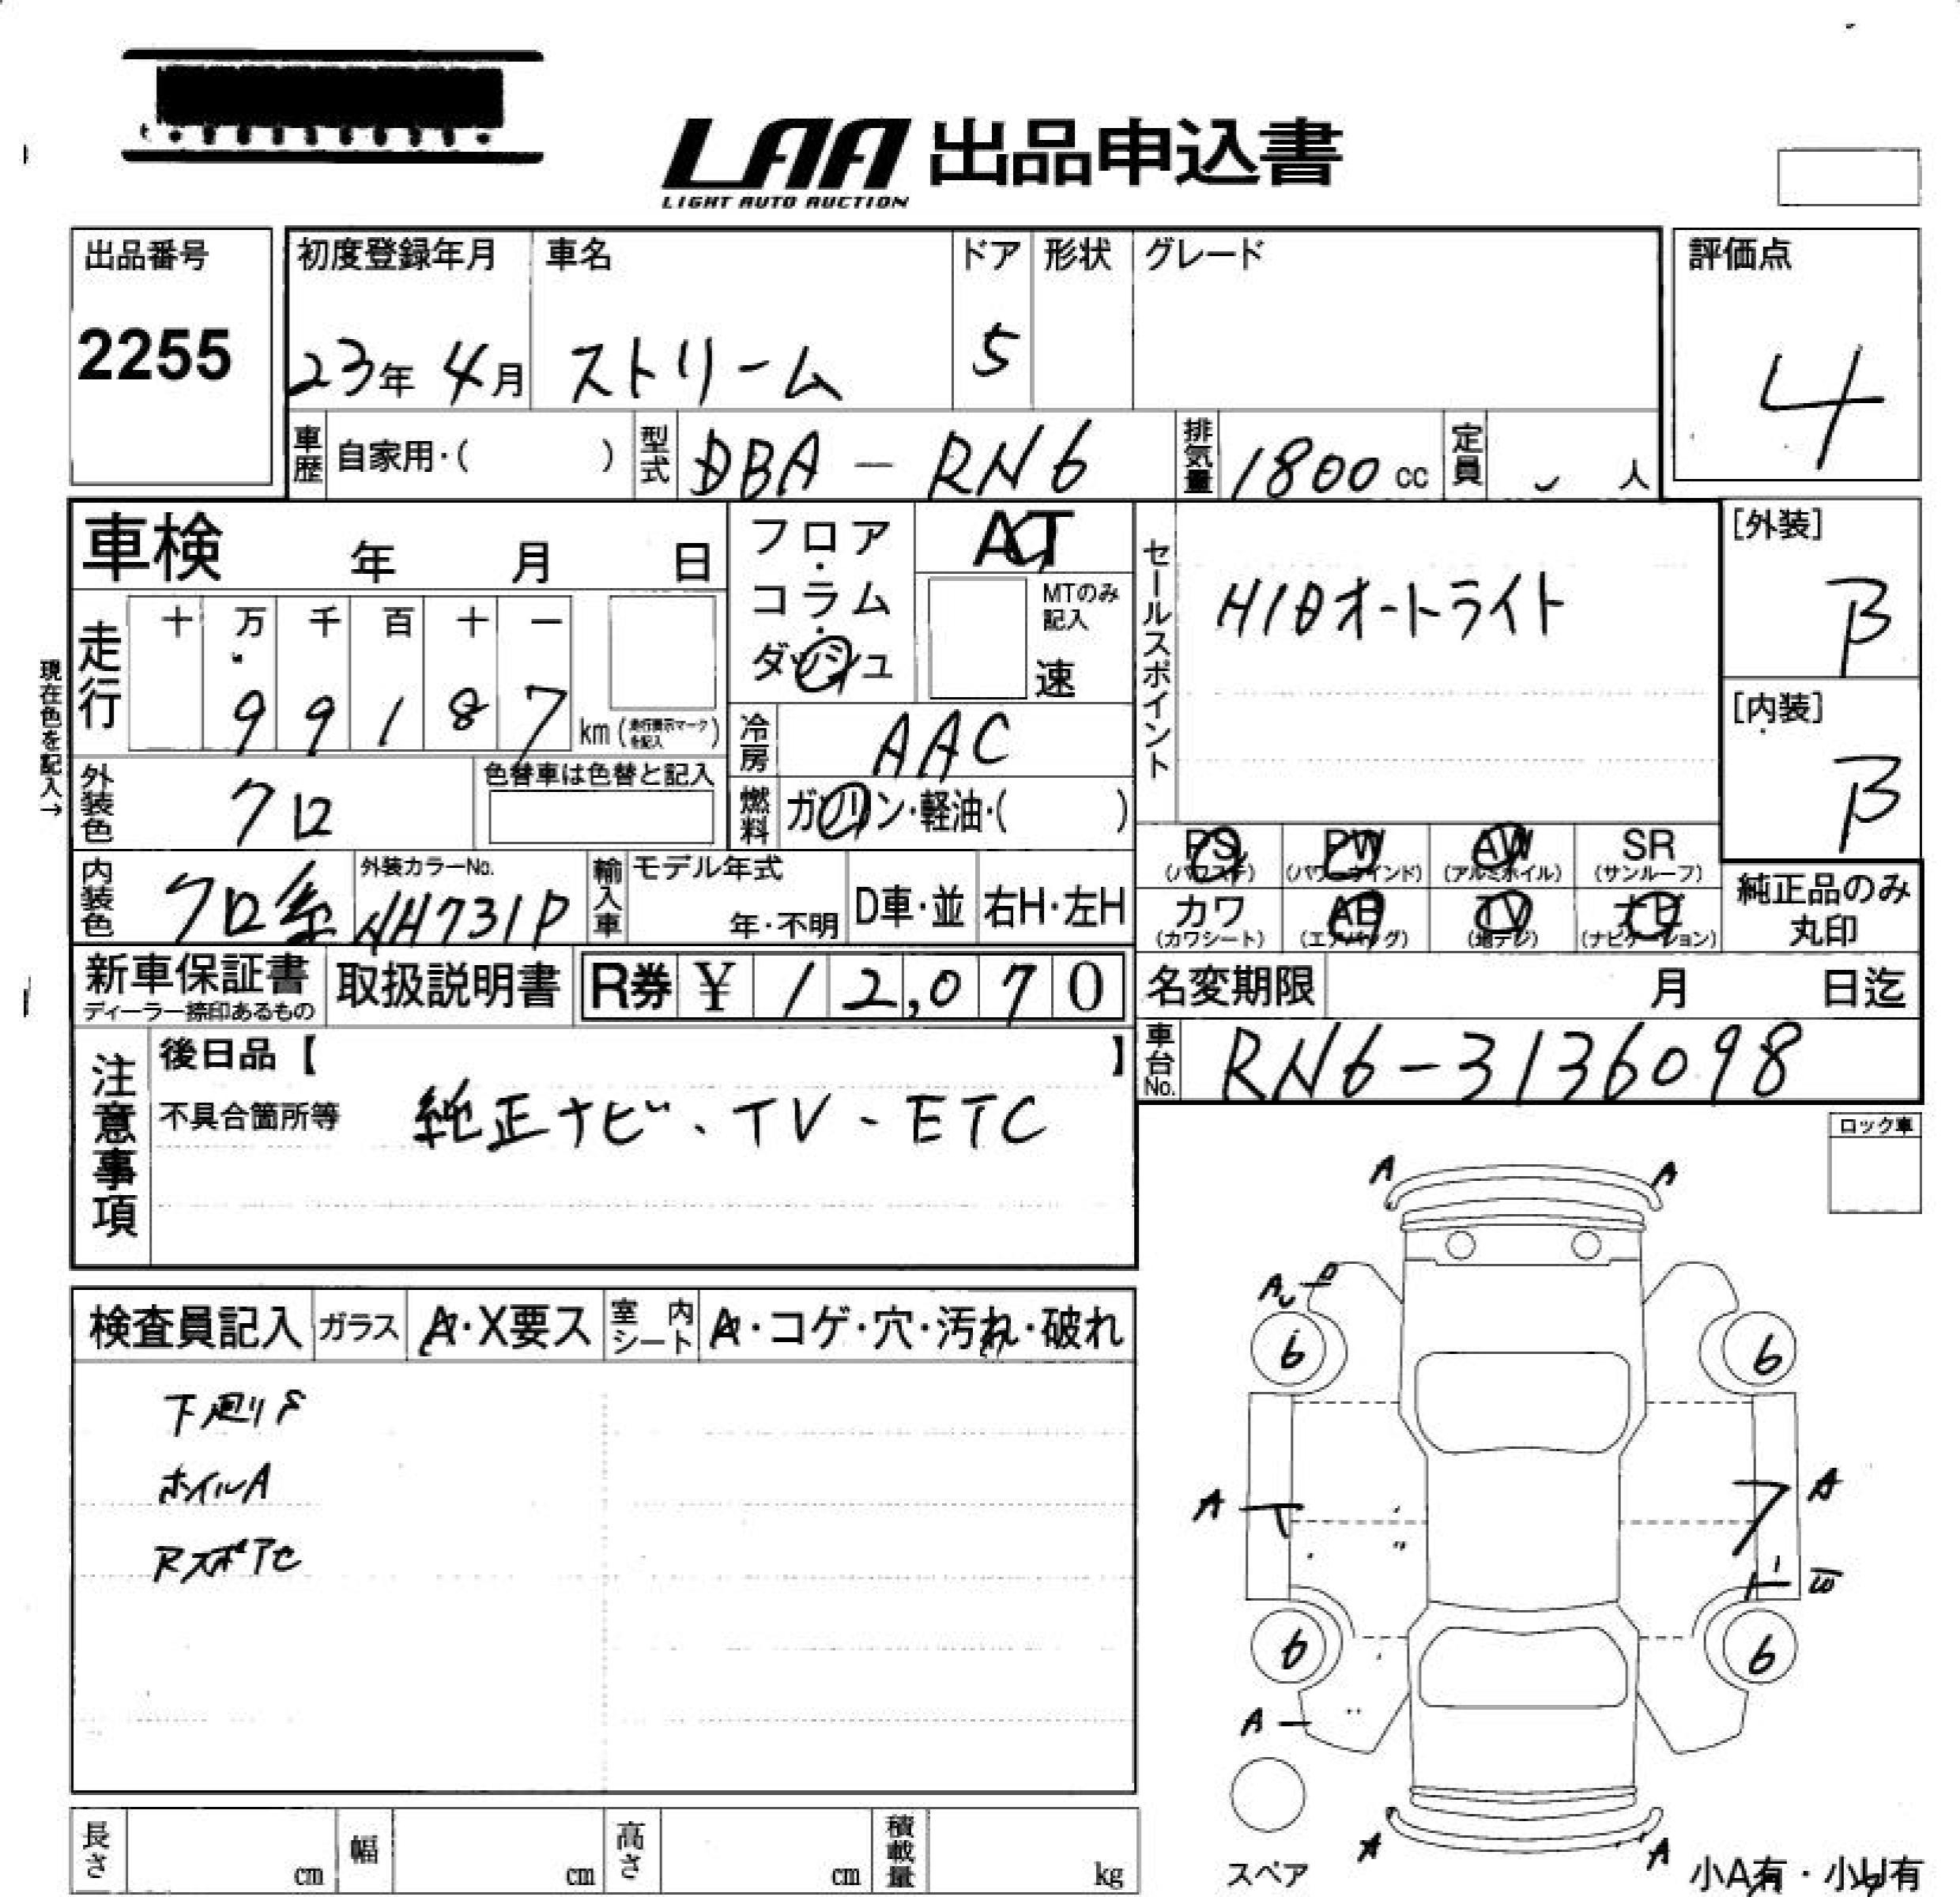 LAA 出品申込書
LIGHT AUTO AUCTION
出品番号
2255
初度登録年月 車名 ドア 形状 グレード
23年 4月 ストリーム 5
評価点
4
車歴 自家用・( ) 型式 DBA - RN6 排気量 1800 cc 定員 人
車検 年 月 日
フロア・コラム・ダッシュ
AT
MTのみ記入
速
セールスポイント
HIDオートライト
[外装]
B
[内装]
B
現在色を記入→
走行 十 万 千 百 十 一
99187 km (走行表示マークを記入)
冷房 AAC
外装色 クロ
色替車は色替と記入
燃料 ガソリン・軽油・( )
PS PW AW SR
(パワステ) (パワーウインド) (アルミホイル) (サンルーフ)
カワ AB TV ナビ
(カワシート) (エアバッグ) (地デジ) (ナビゲーション)
純正品のみ
丸印
内装色 クロ系
外装カラーNo.
NH731P
輸入車 モデル年式
年・不明 D車・並 右H・左H
新車保証書
ディーラー捺印あるもの
取扱説明書 R券 ¥ 12,070
名変期限 月 日迄
車台No. RN6-3136098
注意事項
後日品【 】
不具合箇所等 純正ナビ、TV、ETC
ロック車
検査員記入 ガラス A・X要ス 室内シート A・コゲ・穴・汚れ・破れ
下廻りS
ホイルA
RスポアC
A A
A
6 6
A A
6 6
A
A A
スペア
小A有・小U有
長さ cm 幅 cm 高さ cm 積載量 kg